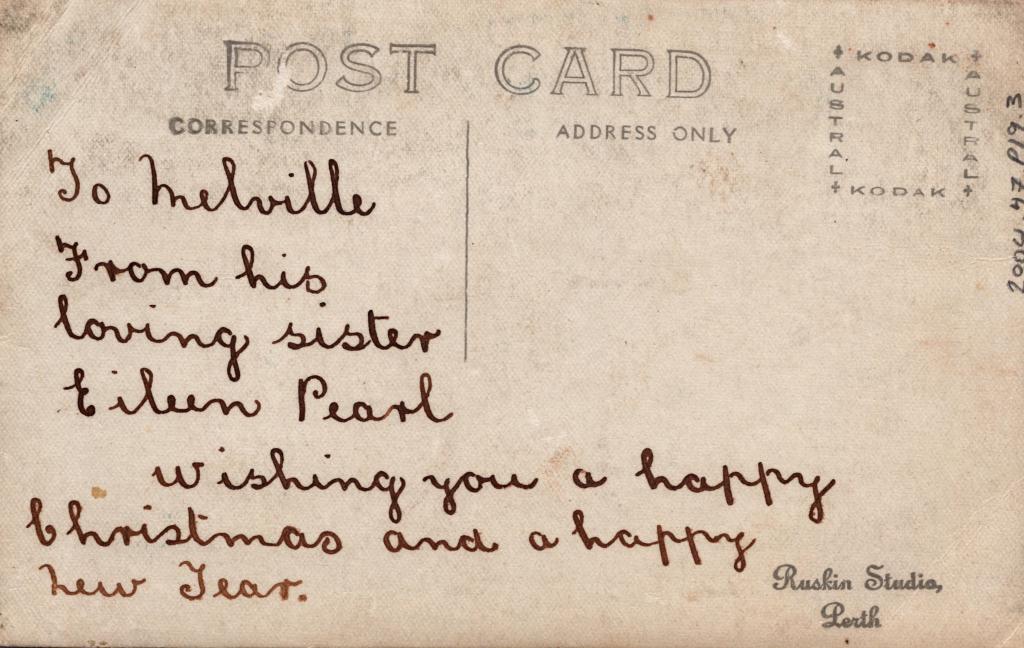 POST CARD
CORRESPONDENCE
ADDRESS ONLY
KODAK
AUSTRAL
AUSTRAL
KODAK
2004.47 P19.3
To Melville
From his
loving sister
Eileen Pearl
Wishing you a happy
Christmas and a happy
New Year.
Ruskin Studio,
Perth